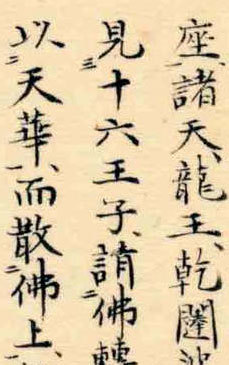 座、諸天、龍王、乾闥
見十六王子、請佛轉
以天華、而散佛上、